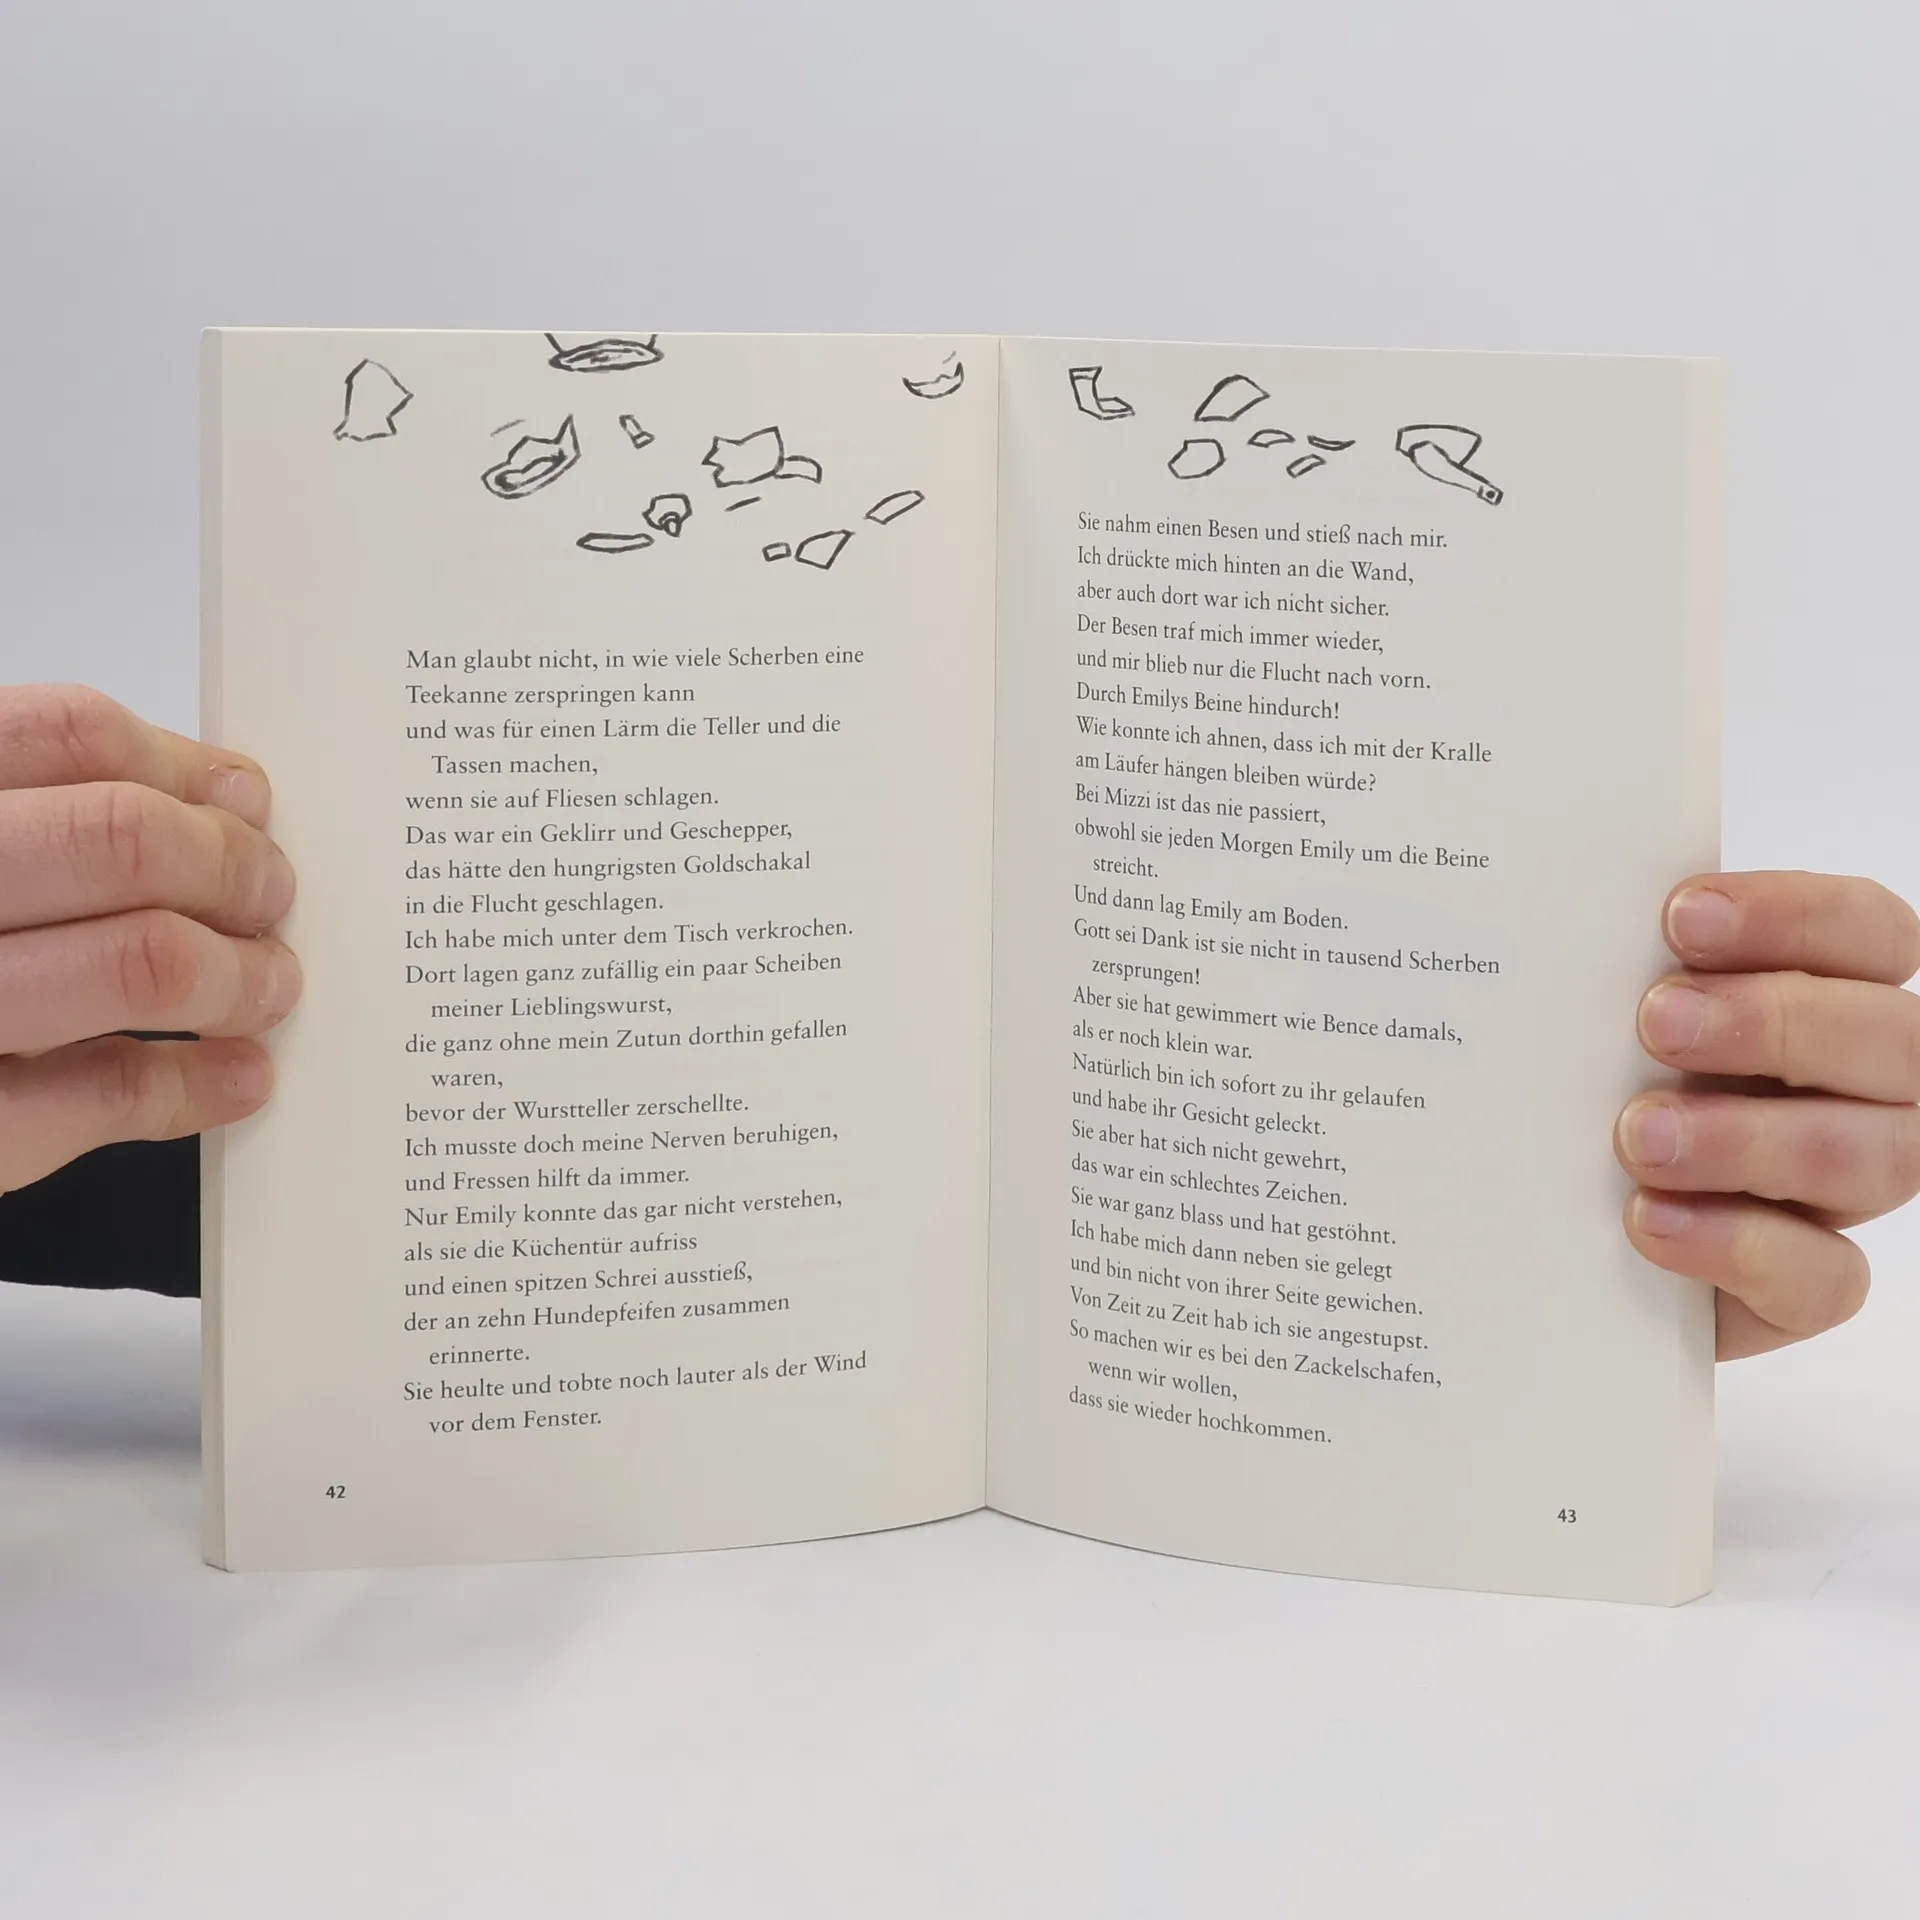 Man glaubt nicht, in wie viele Scherben eine
Teekanne zerspringen kann
und was für einen Lärm die Teller und die
Tassen machen,
wenn sie auf Fliesen schlagen.
Das war ein Geklirr und Geschepper,
das hätte den hungrigsten Goldschakal
in die Flucht geschlagen.
Ich habe mich unter dem Tisch verkrochen.
Dort lagen ganz zufällig ein paar Scheiben
meiner Lieblingswurst,
die ganz ohne mein Zutun dorthin gefallen
waren,
bevor der Wurstteller zerschellte.
Ich musste doch meine Nerven beruhigen,
und Fressen hilft da immer.
Nur Emily konnte das gar nicht verstehen,
als sie die Küchentür aufriss
und einen spitzen Schrei ausstieß,
der an zehn Hundepfeifen zusammen
erinnerte.
Sie heulte und tobte noch lauter als der Wind
vor dem Fenster.
42
Sie nahm einen Besen und stieß nach mir.
Ich drückte mich hinten an die Wand,
aber auch dort war ich nicht sicher.
Der Besen traf mich immer wieder,
und mir blieb nur die Flucht nach vorn.
Durch Emilys Beine hindurch!
Wie konnte ich ahnen, dass ich mit der Kralle
am Läufer hängen bleiben würde?
Bei Mizzi ist das nie passiert,
obwohl sie jeden Morgen Emily um die Beine
streicht.
Und dann lag Emily am Boden.
Gott sei Dank ist sie nicht in tausend Scherben
zersprungen!
Aber sie hat gewimmert wie Bence damals,
als er noch klein war.
Natürlich bin ich sofort zu ihr gelaufen
und habe ihr Gesicht geleckt.
Sie aber hat sich nicht gewehrt,
das war ein schlechtes Zeichen.
Sie war ganz blass und hat gestöhnt.
Ich habe mich dann neben sie gelegt
und bin nicht von ihrer Seite gewichen.
Von Zeit zu Zeit hab ich sie angestupst.
So machen wir es bei den Zackelschafen,
wenn wir wollen,
dass sie wieder hochkommen.
43